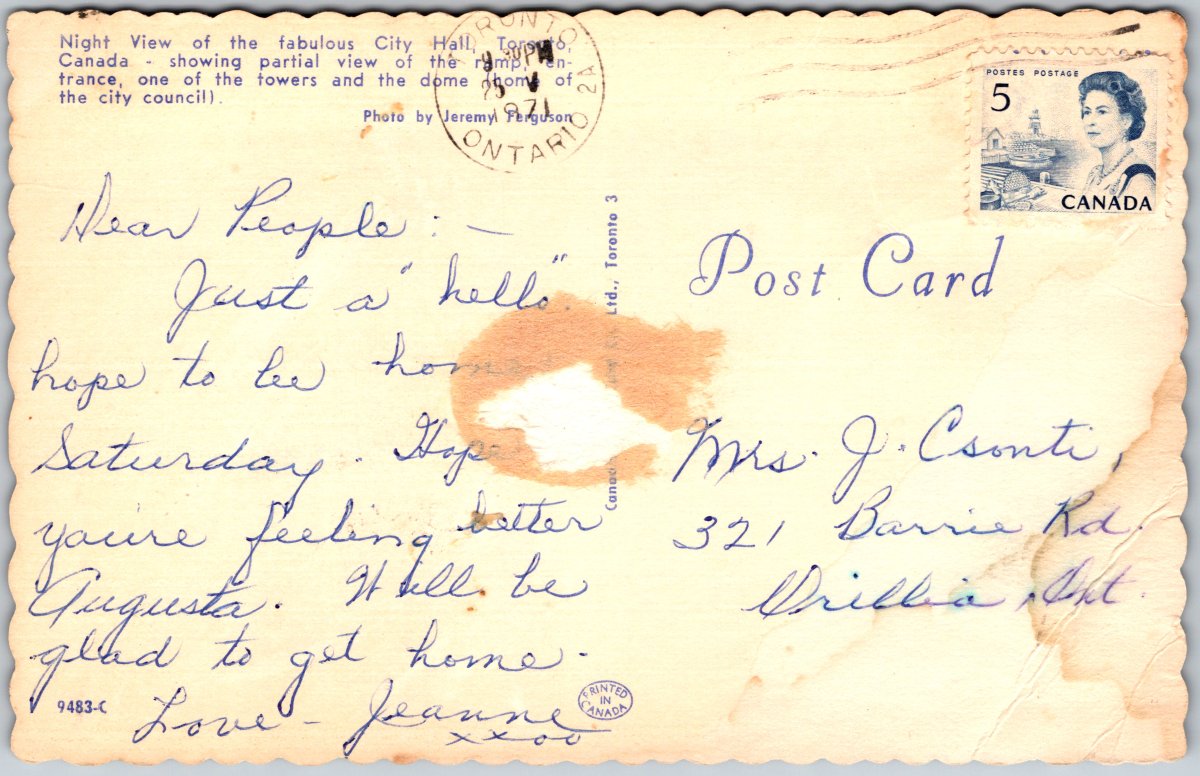 Night View of the fabulous City Hall, Toronto,
Canada - showing partial view of the ramp, en-
trance, one of the towers and the dome (home of
the city council).
Photo by Jeremy Ferguson
TORONTO
PM
25 V
1971
ONTARIO 2A
POSTES POSTAGE
5
CANADA
Dear People : -
Just a "hello".
hope to be home
Saturday. Hope
you're feeling better
Augusta. Will be
glad to get home.
Love - Jeanne
xxoo
9483-C
PRINTED
IN
CANADA
Ltd., Toronto 3
Post Card
Mrs. J. Csonti,
321 Barrie Rd.
Orillia, Ont.